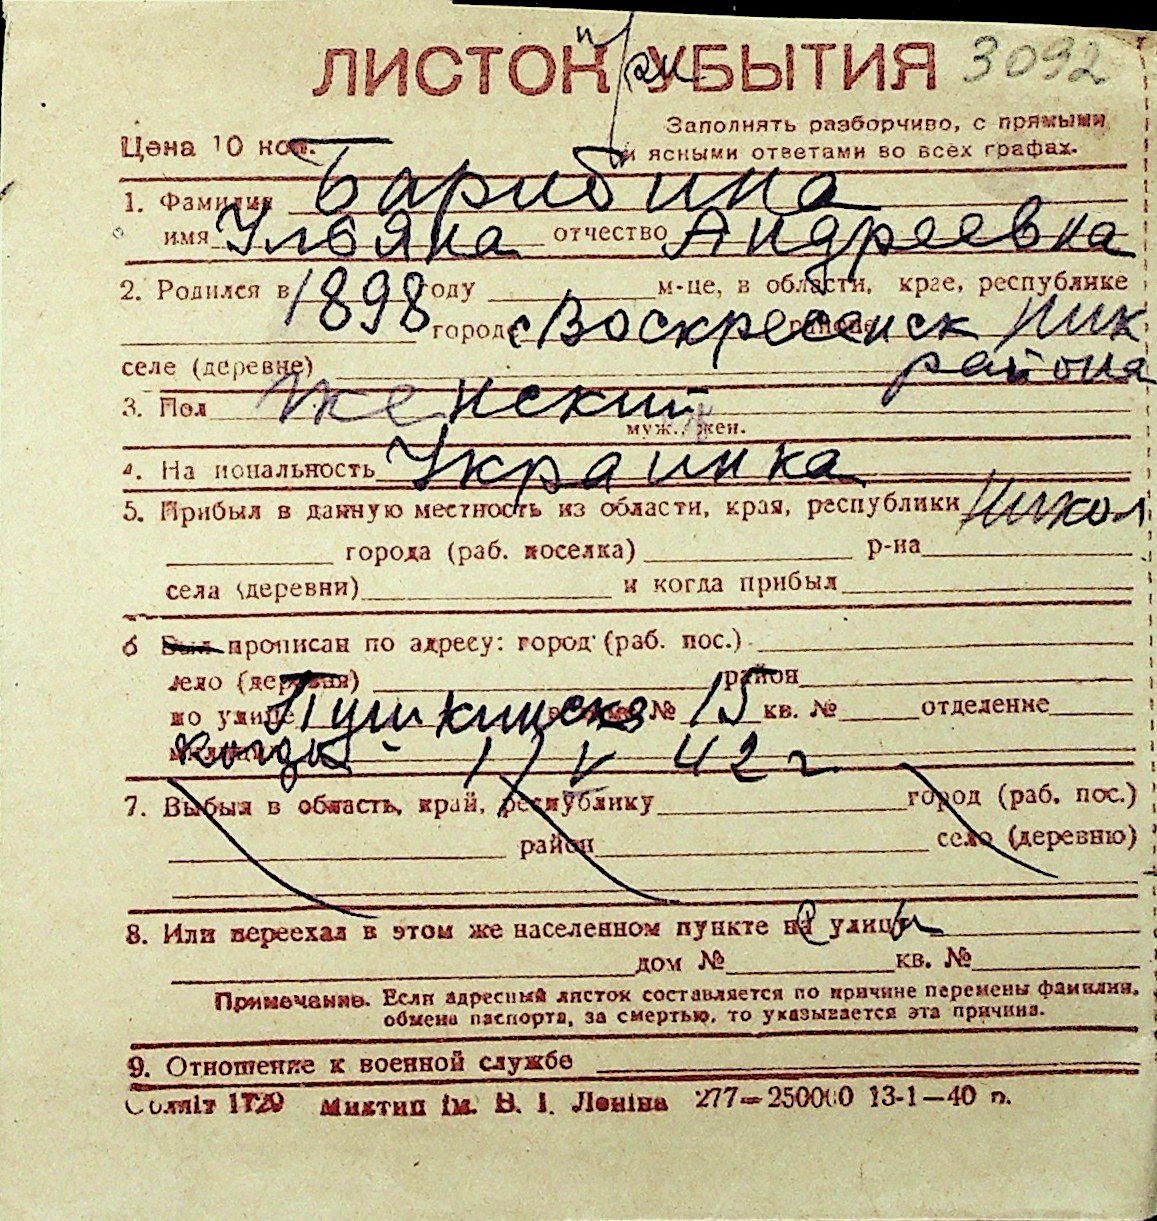 ЛИСТОК УБЫТИЯ 3092
при
Заполнять разборчиво, с прямыми
Цена 10 коп. и ясными ответами во всех графах.
1. Фамилия Барибина
имя Ульяна отчество Андреевка
2. Родился в 1898 году м-це, в области, крае, республике
городе с Воскресенск районе Ник
селе (деревне) района
3. Пол Женский
муж., жен.
4. На иональность Украинка
5. Прибыл в данную местность из области, края, республики Никол
города (раб. поселка) р-на
села (деревни) и когда прибыл
6 Был прописан по адресу: город (раб. пос.)
село (деревня) район
по улице Пушкинска № 15 кв. № отделение
когда 17 V 42 г.
7. Выбыл в область, край, республику город (раб. пос.)
район село (деревню)
8. Или переехал в этом же населенном пункте на улицы
дом № кв. №
Примечание. Если адресный листок составляется по причине перемены фамилии,
обмена паспорта, за смертью, то указывается эта причина.
9. Отношение к военной службе
Обліт 1720 Миктип ім. В. І. Леніна 277—250000 13-1—40 р.